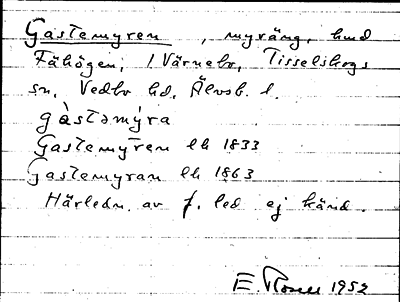 Gastemyren, myräng, hmd
Fähögen, / Värnebo, Tisselskogs
sn, Vedbo hd, Älvsb. l.
gàstəmýra
Gastemyren lk 1833
Gastemyran lk 1863
Härledn. av f. led ej känd.
E. Rosell 1952